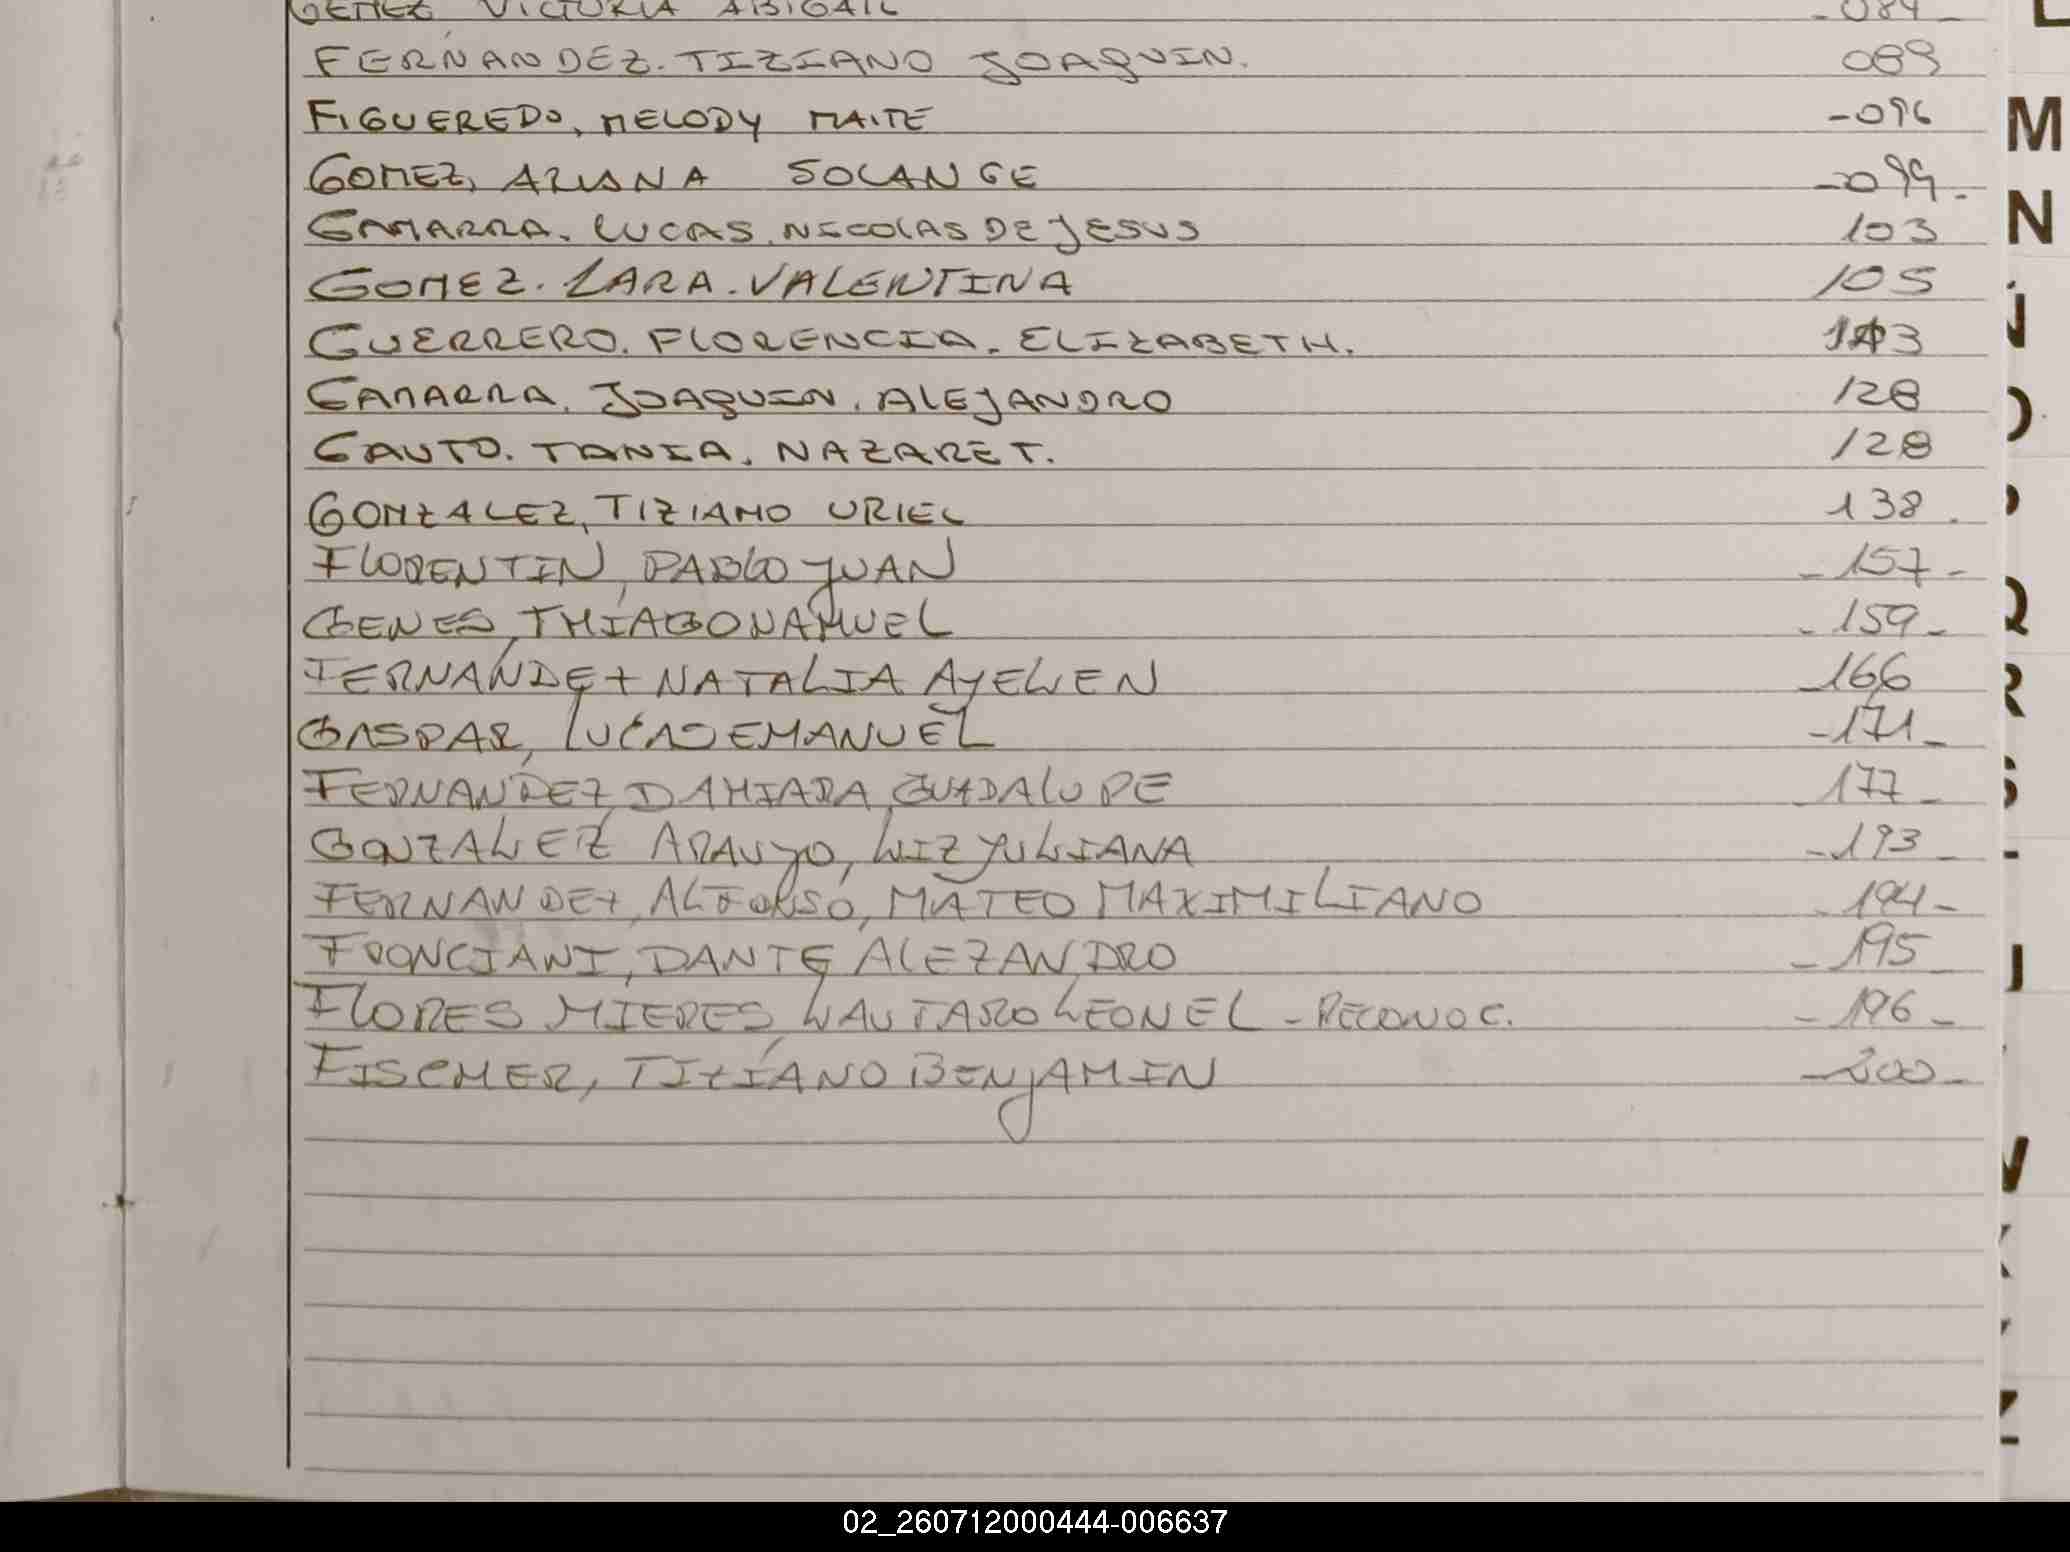 GEMEZ VICTORIA ABIGAIL -084-
FERNANDEZ. TIZIANO JOAQUIN. 089
FIGUEREDO, MELODY MAITE -096
GOMEZ, ARIANA SOLANGE -099-
GAMARRA. LUCAS. NICOLAS DE JESUS 103
GOMEZ. LARA. VALENTINA 105
GUERRERO. FLORENCIA. ELIZABETH. 113
GAMARRA. JOAQUIN. ALEJANDRO 128
GAUTO. TANIA. NAZARET. 128
GONZALEZ, TIZIANO URIEL 138.
FLORENTIN, PABLO JUAN -157-
GENES, THIAGO NAHUEL -159-
FERNANDEZ NATALIA AYELEN -166
GASPAR, LUCAS EMANUEL -171-
FERNANDEZ, DAHIARA GUADALUPE -177-
GONZALEZ ARAUJO, LIZ YULIANA -193-
FERNANDEZ, ALFONSO, MATEO MAXIMILIANO -194-
FRONCIANI, DANTE ALEZANDRO -195-
FLORES MIERES LAUTARO LEONEL - RECONOC. -196-
FISCHER, TIZIANO BENJAMIN -200-
L
M
N
Ñ
O
P
Q
R
S
T
U
V
X
Y
Z
02_260712000444-006637